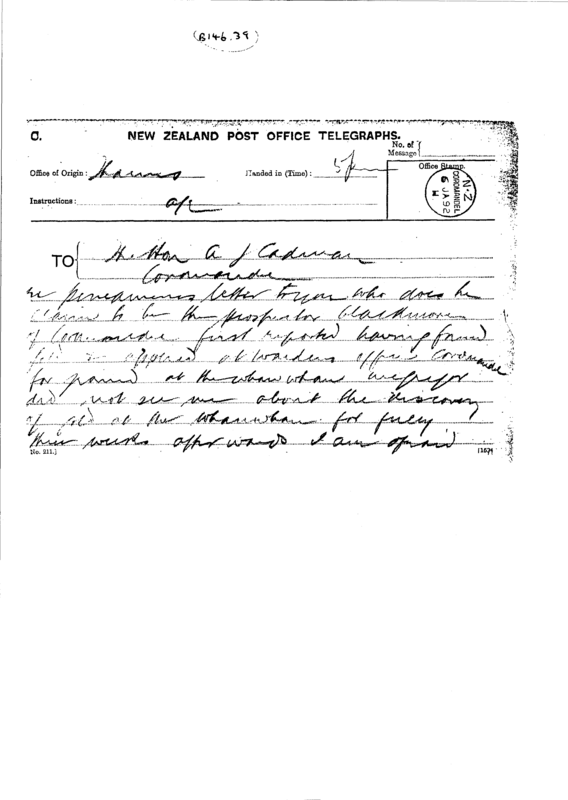 (B146.39)
O.
NEW ZEALAND POST OFFICE TELEGRAPHS.
No. of
Message
Office of Origin: Thames
Handed in (Time): 5 pm
Office Stamp.
N.Z
COROMANDEL
6 JA 92
Instructions:
TO
The Hon A J Cadman
Coromandel
re letter to you who does he
claim to be the prospector Blackmore
of Coromandel first reported having found
gold & applied at wardens office Coromandel
for ground at the whau whau McGregor
did not see me about the discovery
of gold at the whau whau for fully
three weeks afterwards I am afraid
No. 211.]